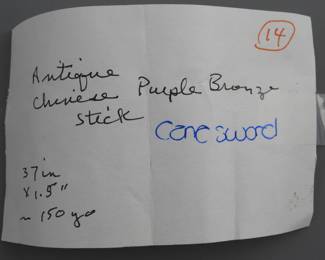 14
Antique
Chinese Purple Bronze
Stick
Cane sword
37 in
x 1.5"
~ 150 yrs